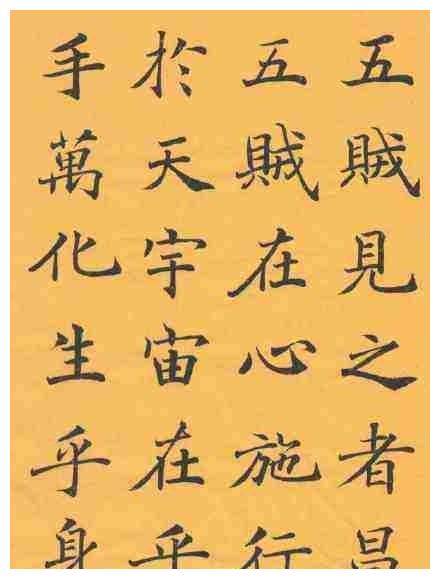 五賊見之者昌
五賊在心施行
於天宇宙在乎
手萬化生乎身